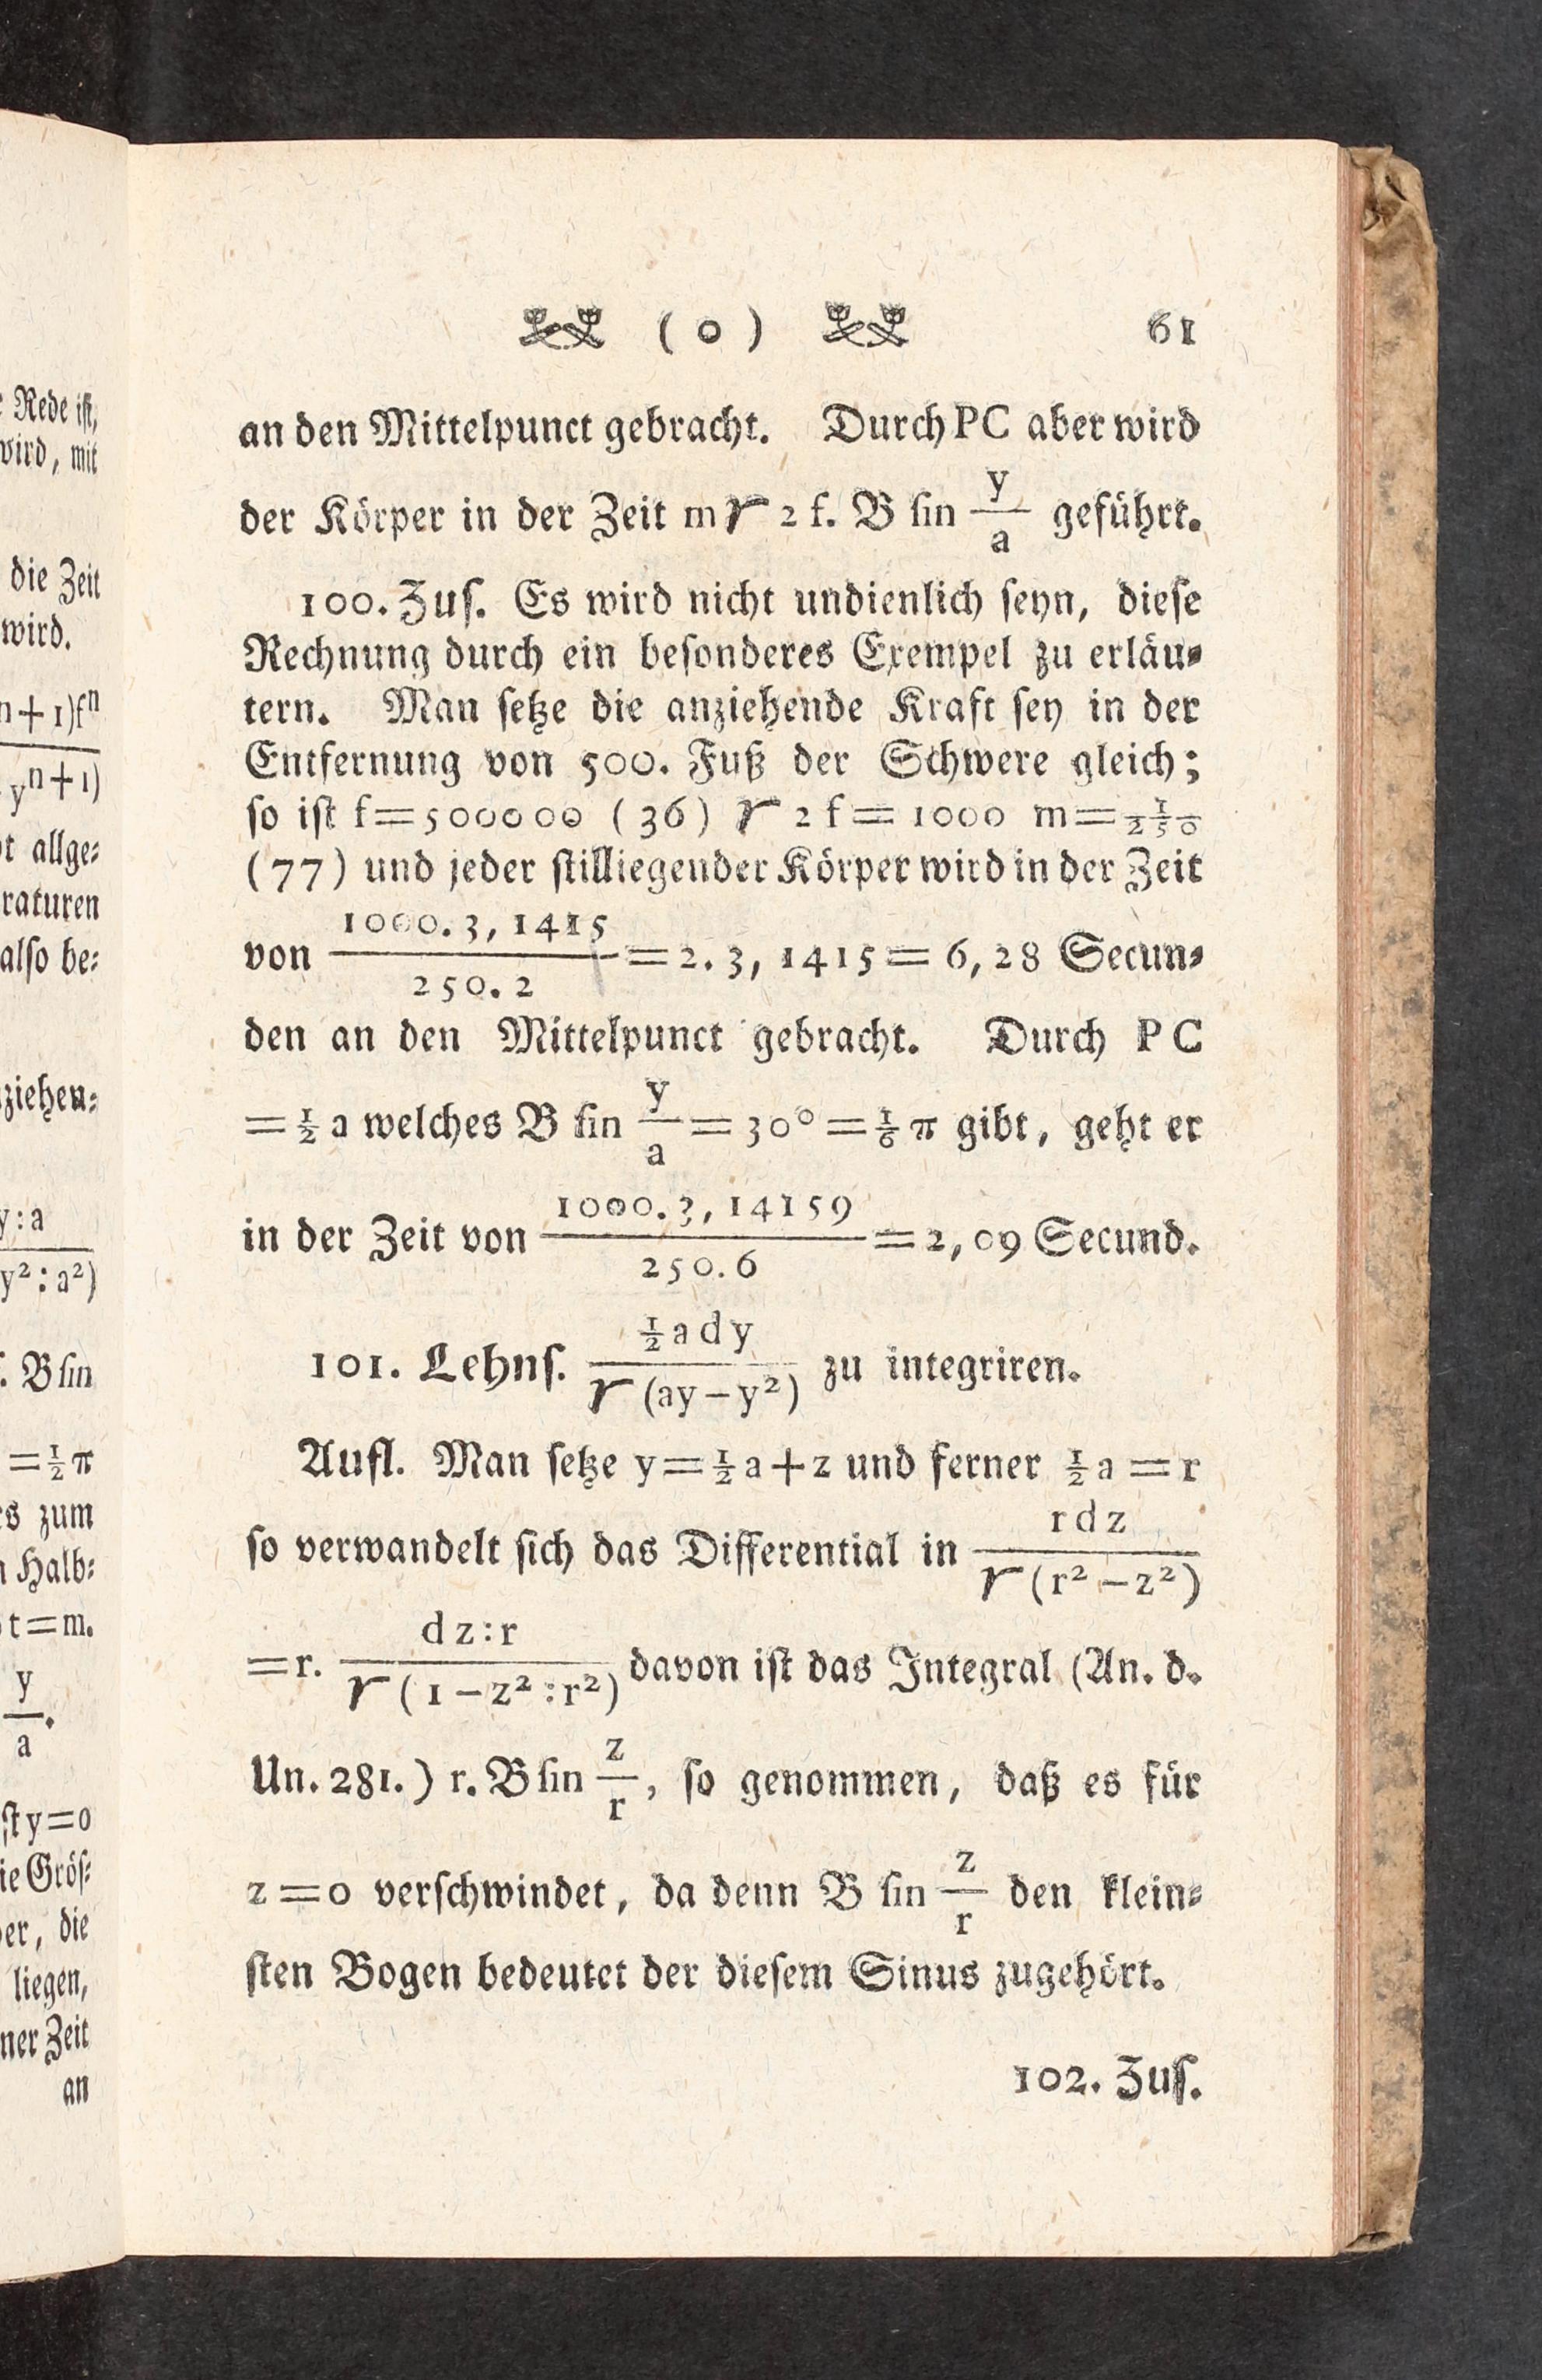 ( o ) 61
an den Mittelpunct gebracht. Durch PC aber wird
der Körper in der Zeit m√ 2 f. B ſin y/a geführt.
100. Zuſ. Es wird nicht undienlich ſeyn, dieſe
Rechnung durch ein beſonderes Exempel zu erläu⸗
tern. Man ſetze die anziehende Kraft ſey in der
Entfernung von 500. Fuß der Schwere gleich;
ſo iſt f=500000 (36) √ 2 f = 1000 m= 1/250
(77) und jeder ſtilliegender Körper wird in der Zeit
von 1000. 3, 1415 / 250. 2 = 2. 3, 1415 = 6, 28 Secun⸗
den an den Mittelpunct gebracht. Durch PC
= ½ a welches B ſin y/a = 30° = ⅙ π gibt, geht er
in der Zeit von 1000. 3, 14159 / 250. 6 = 2, 09 Secund.
101. Lehnſ. ½ a d y / √ (ay – y²) zu integriren.
Aufl. Man ſetze y = ½ a + z und ferner ½ a = r
ſo verwandelt ſich das Differential in r d z / √ (r² – z²)
= r. d z : r / √ ( 1 – z² : r²) davon iſt das Integral (An. d.
Un. 281.) r. B ſin z/r, ſo genommen, daß es für
z = 0 verſchwindet, da denn B ſin z/r den klein⸗
ſten Bogen bedeutet der dieſem Sinus zugehört.
102. Zuſ.
Rede iſt,
wird, mit
die Zeit
wird.
n + 1) fⁿ
yⁿ⁺¹)
allge⸗
raturen
alſo be⸗
ziehen⸗
y : a
y² : a²)
B ſin
= ½ π
zum
Halb⸗
t = m.
y/a.
y = 0
Gröſ⸗
die
liegen,
Zeit
an